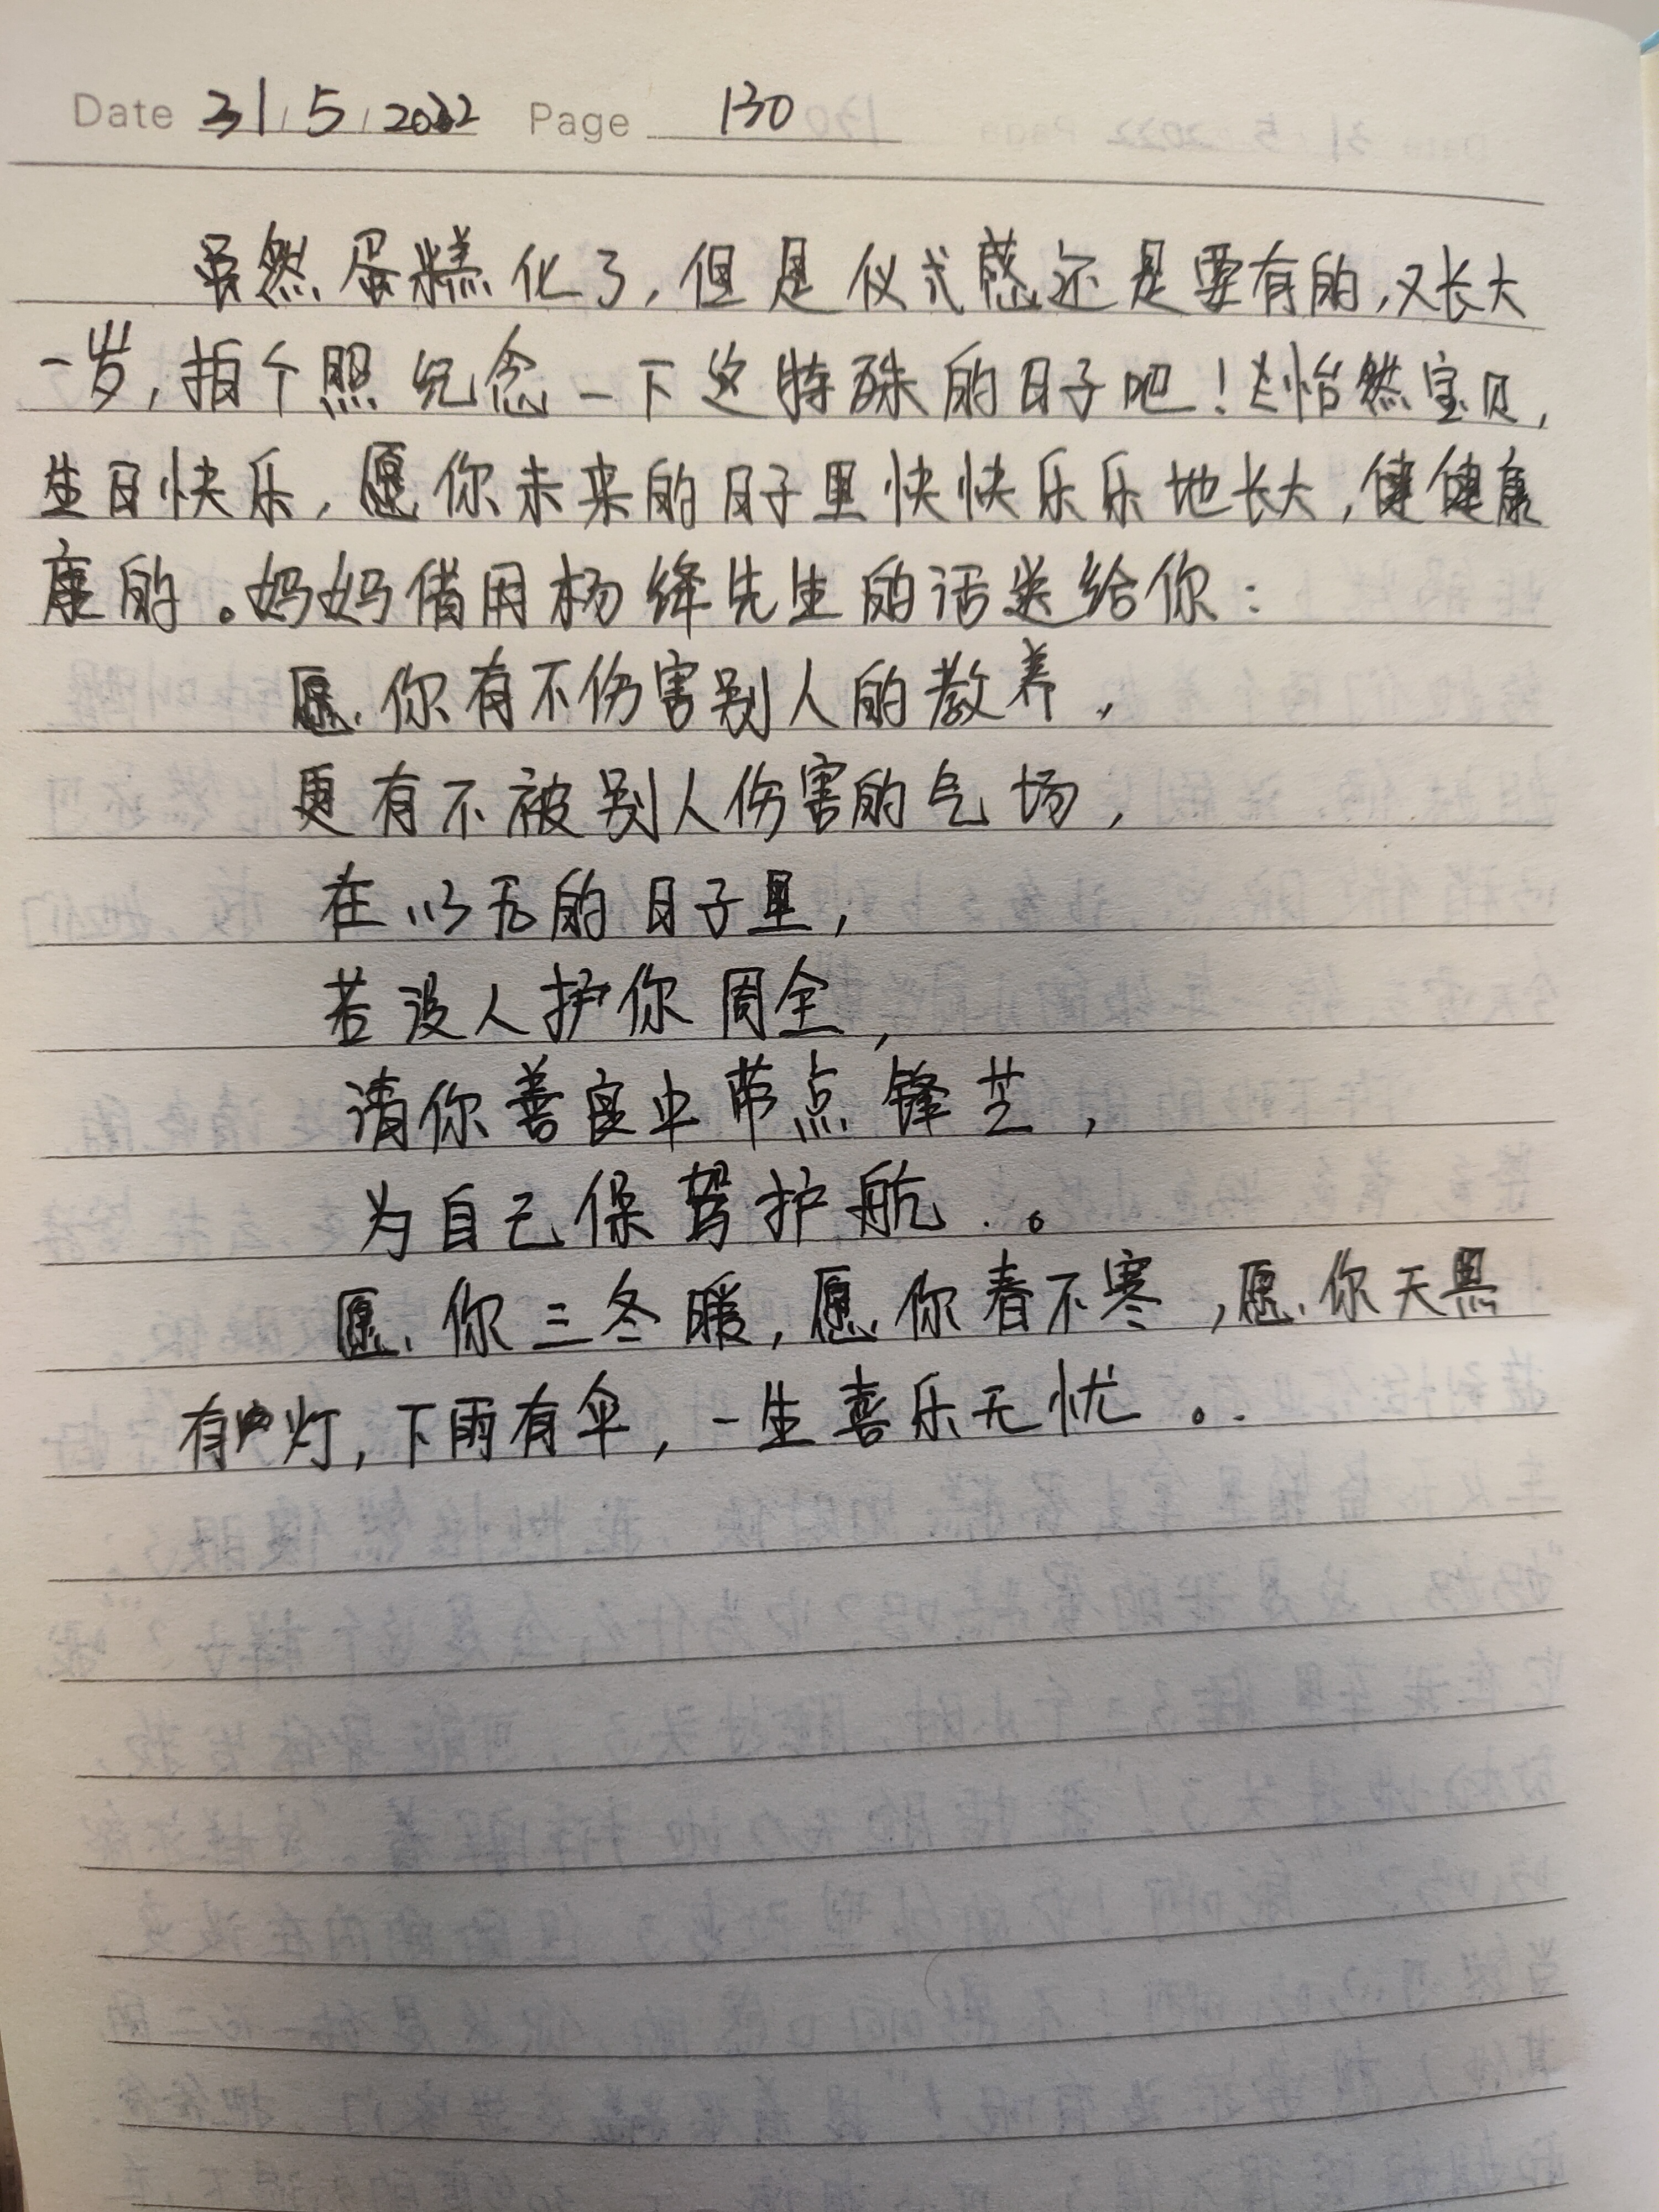 Date 31/5/2022 Page 130
虽然蛋糕化了,但是仪式感还是要有的,又长大
一岁,拍个照纪念一下这特殊的日子吧!赵怡然宝贝,
生日快乐,愿你未来的日子里快快乐乐地长大,健健康
康的。妈妈借用杨绛先生的话送给你:
愿你有不伤害别人的教养,
更有不被别人伤害的气场,
在以后的日子里,
若没人护你周全,
请你善良中带点锋芒,
为自己保驾护航。
愿你三冬暖,愿你春不寒,愿你天黑
有灯,下雨有伞,一生喜乐无忧。